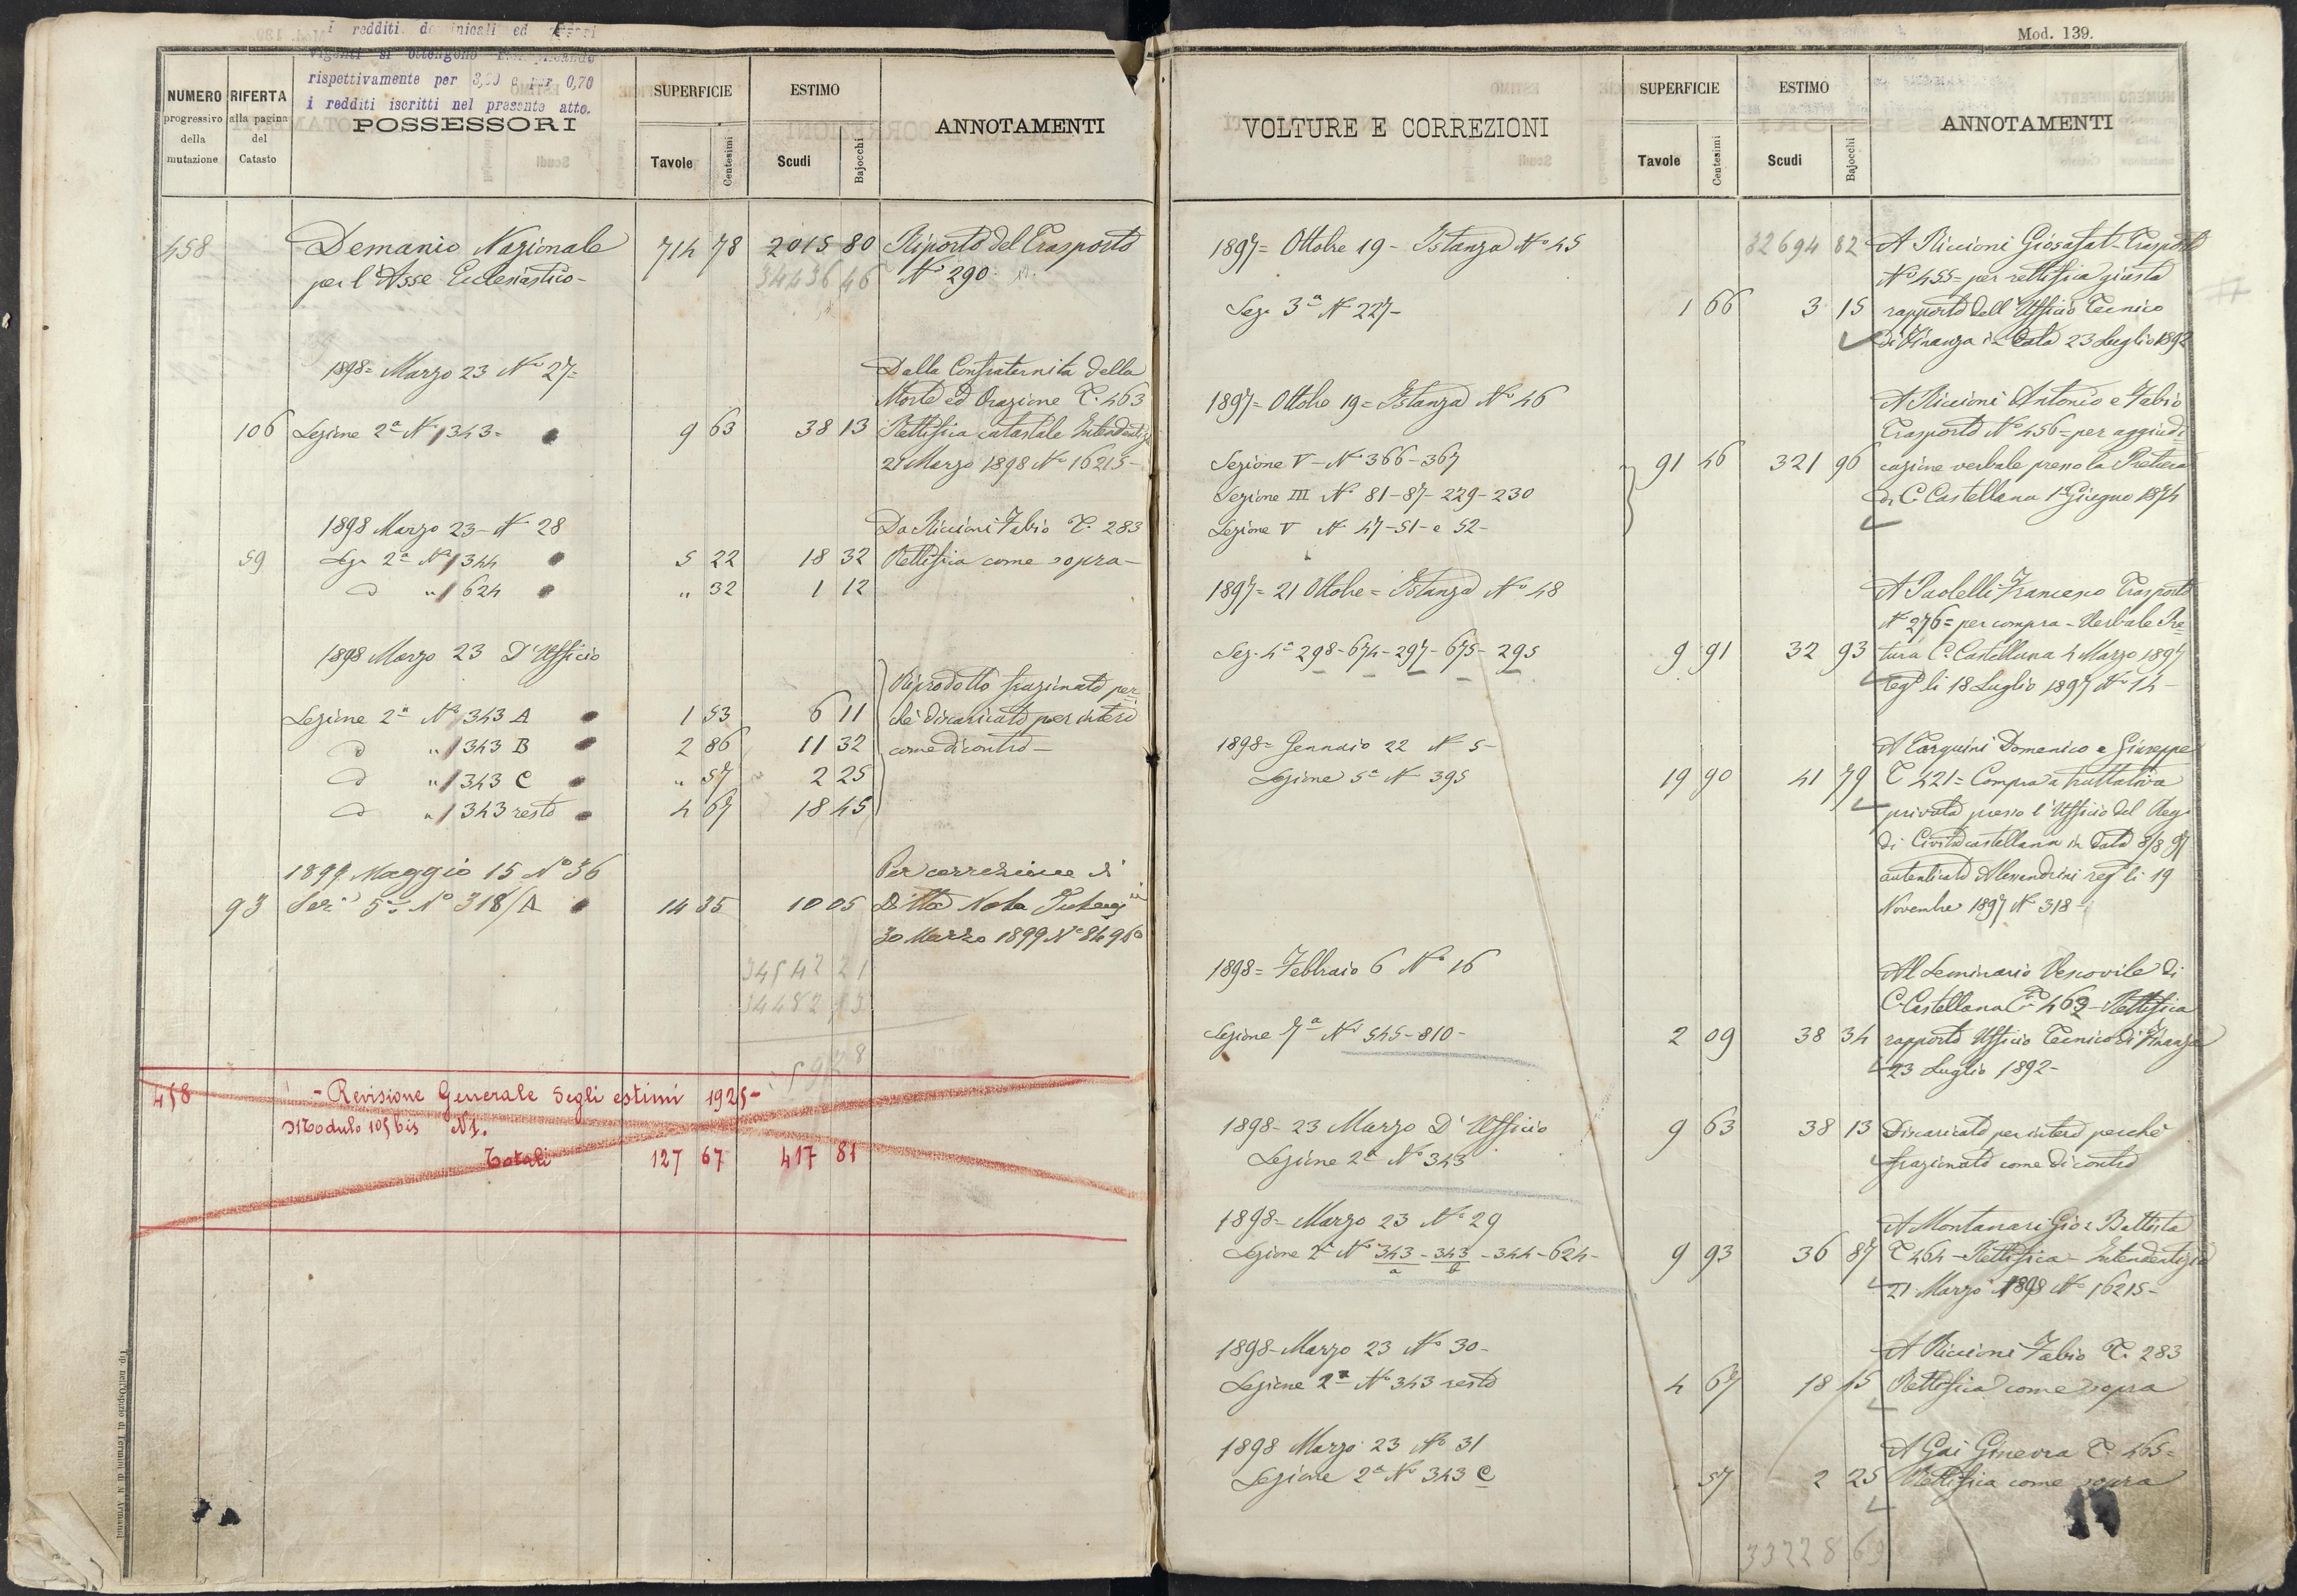 I redditi dominicali ed
vigenti si ottengono
rispettivamente per 3,50 e per 0,70
i redditi iscritti nel presente atto.
NUMERO progressivo della mutazione
RIFERTA alla pagina del Catasto
POSSESSORI
SUPERFICIE
Tavole Centesimi
ESTIMO
Scudi Bajocchi
ANNOTAMENTI
458 Demanio Nazionale 714 78 2015 80 Riporto del Trasporto
per l'Asse Ecclesiastico - 34436 46 No 290
1898 = Marzo 23 No 27 = Dalla Confraternita della
Morte ed Orazione T. 463
106 Sezione 2a No 1343 = 9 63 38 13 Rettifica catastale Intendentizia
21 Marzo 1898 No 16215 -
1898 Marzo 23 - No 28 Da Riccioni Fabio T. 283
59 Sez. 2a No 1344 5 22 18 32 Rettifica come sopra -
d " 1624 " 32 1 12
1898 Marzo 23 D'Ufficio
Riprodotto frazionato per-
Sezione 2a No 1343 A 1 53 6 11 chè discaricato per intero
d " 1343 B 2 86 11 32 come dicontro -
d " 1343 C " 57 2 25
d " 1343 resto 4 67 18 45
1899 Maggio 15 No 36 Per correzione di
93 Sez. 5a No 318/A 14 35 10 05 Ditta Nota
30 Marzo 1899 No
34542 21
34482 83
458 - Revisione Generale degli estimi 1925 -
Modulo 105 bis N 1.
Totali 127 67 417 81
Tip. nell'Ospizio di Termini di N. Armanni
Mod. 139.
VOLTURE E CORREZIONI
SUPERFICIE
Tavole Centesimi
ESTIMO
Scudi Bajocchi
ANNOTAMENTI
1897 = Ottobre 19 - Istanza No 45 32694 82 A Riccioni Giosafat - Trasporto
No 455 = per rettifica giusta
Sez. 3a No 227 - 1 66 3 15 rapporto dell'Ufficio Tecnico
di Finanza in data 23 Luglio 1892
1897 = Ottobre 19 = Istanza No 46 A Riccioni Antonio e Fabio
Trasporto No 456 = per aggiudi-
Sezione V - No 366 - 367 91 46 321 96 cazione verbale presso la Pretura
Sezione III No 81 - 87 - 229 - 230 di C. Castellana 1 Giugno 1874
Sezione V No 47 - 51 - e 52 -
1897 = 21 Ottobre = Istanza No 48 A Paolelli Francesco Trasporto
No 276 = per compra - Verbale Pre-
Sez. 4a 298 - 674 - 297 - 675 - 295 9 91 32 93 tura C. Castellana 4 Marzo 1897
regto li 18 Luglio 1897 No 14 -
1898 = Gennaio 22 No 5 - A Tarquini Domenico e Giuseppe
Sezione 5a No 395 19 90 41 79 T 421 = Compra a trattativa
privata presso l'Ufficio del Reg.
di Civitacastellana in data 8/8 97
autenticato Alessandrini regto li 19
Novembre 1897 No 318 -
1898 = Febbraio 6 No 16 Al Seminario Vescovile di
C. Castellana T. 462 - Rettifica
Sezione 7a No 545 - 810 - 2 09 38 34 rapporto Ufficio Tecnico di Finanza
23 Luglio 1892 -
1898 - 23 Marzo D'Ufficio 9 63 38 13 Discaricato per intero perchè
Sezione 2a No 343 frazionato come dicontro
1898 - Marzo 23 No 29 A Montanari Gio: Battista
Sezione 2a No 343/a - 343/b - 344 - 624 - 9 93 36 87 T 464 - Rettifica - Intendentizia
21 Marzo 1898 No 16215 -
1898 - Marzo 23 No 30 - A Riccioni Fabio T. 283
Sezione 2a No 343 resto 4 67 18 45 Rettifica come sopra
1898 Marzo 23 No 31 A Gai Ginevra T. 465 =
Sezione 2a No 343 C 57 2 25 Rettifica come sopra